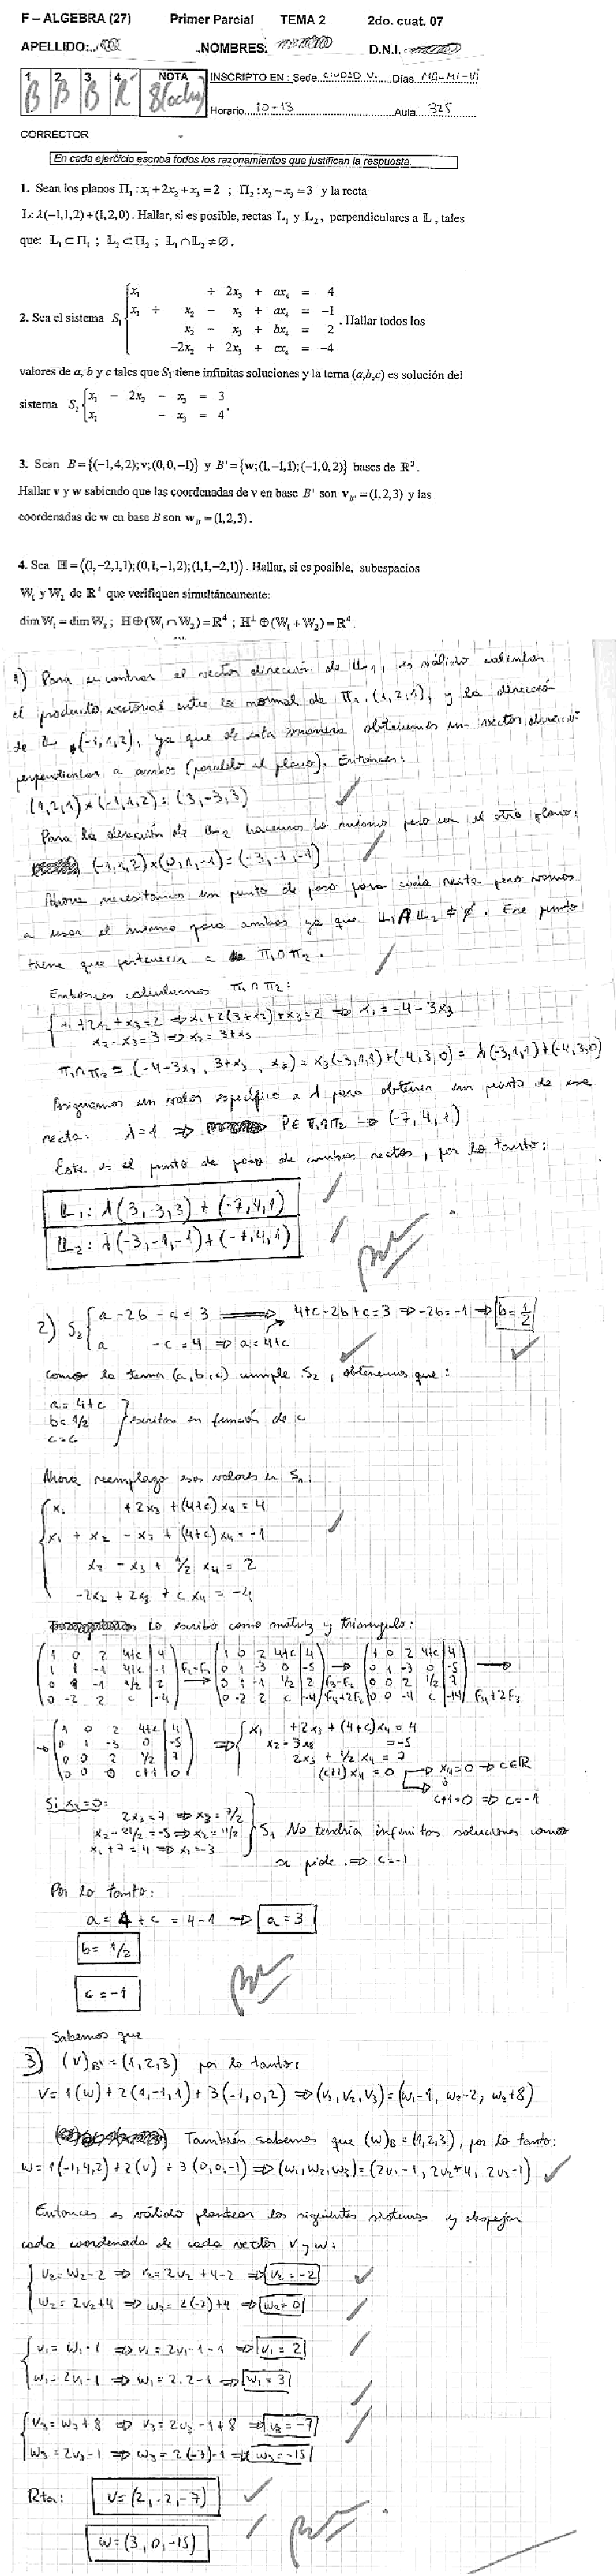 F – ALGEBRA (27) Primer Parcial TEMA 2 2do. cuat. 07
APELLIDO: NOMBRES: D.N.I.
1 2 3 4 NOTA INSCRIPTO EN: Sede CIUDAD U. Días MA-MI-VI
B B B R 8(ocho) Horario 10-13 Aula 325
CORRECTOR
En cada ejercicio escriba todos los razonamientos que justifican la respuesta.
1. Sean los planos Π₁ : x₁ + 2x₂ + x₃ = 2 ; Π₂ : x₂ – x₃ = 3 y la recta
L: λ(-1,1,2) + (1,2,0). Hallar, si es posible, rectas L₁ y L₂, perpendiculares a L, tales
que: L₁ ⊂ Π₁ ; L₂ ⊂ Π₂ ; L₁ ∩ L₂ ≠ ∅.
x₁ + 2x₃ + ax₄ = 4
2. Sea el sistema S₁ x₁ + x₂ – x₃ + ax₄ = –1 . Hallar todos los
x₂ – x₃ + bx₄ = 2
–2x₂ + 2x₃ + cx₄ = –4
valores de a, b y c tales que S₁ tiene infinitas soluciones y la terna (a,b,c) es solución del
sistema S₂ { x₁ – 2x₂ – x₃ = 3
x₁ – x₃ = 4 .
3. Sean B = {(-1,4,2); v; (0,0,-1)} y B' = {w; (1,-1,1); (-1,0,2)} bases de R³.
Hallar v y w sabiendo que las coordenadas de v en base B' son v_B' = (1,2,3) y las
coordenadas de w en base B son w_B = (1,2,3).
4. Sea H = ⟨(1,-2,1,1); (0,1,-1,2); (1,1,-2,1)⟩. Hallar, si es posible, subespacios
W₁ y W₂ de R⁴ que verifiquen simultáneamente:
dim W₁ = dim W₂ ; H ⊕ (W₁ ∩ W₂) = R⁴ ; H⊥ ⊕ (W₁ + W₂) = R⁴.
1) Para encontrar el vector dirección de L₁, es válido calcular
el producto vectorial entre la normal de Π₁, (1,2,1), y la dirección
de L (-1,1,2), ya que de esta manera obtenemos un vector dirección
perpendicular a ambos (paralelo al plano). Entonces:
(1,2,1)×(-1,1,2) = (3,-3,3)
Para la dirección de L₂ hacemos lo mismo pero con el otro plano:
(-1,1,2)×(0,1,-1) = (-3,-1,-1)
Ahora necesitamos un punto de paso para cada recta pero vamos
a usar el mismo para ambas ya que L₁∩L₂ ≠ ∅. Ese punto
tiene que pertenecer a Π₁∩Π₂.
Entonces calculamos Π₁∩Π₂:
{ x₁+2x₂+x₃=2 ⇒ x₁+2(3+x₃)+x₃=2 ⇒ x₁=-4-3x₃
x₂-x₃=3 ⇒ x₂=3+x₃
Π₁∩Π₂ = (-4-3x₃, 3+x₃, x₃) = x₃(-3,1,1)+(-4,3,0) = λ(-3,1,1)+(-4,3,0)
Asignamos un valor específico a λ para obtener un punto de esa
recta: λ=1 ⇒ P∈Π₁∩Π₂ → (-7,4,1)
Este es el punto de paso de ambas rectas, por lo tanto:
L₁: λ(3,-3,3)+(-7,4,1)
L₂: λ(-3,-1,-1)+(-7,4,1)
2) S₂ { a-2b-c=3 ⇒ 4+c-2b-c=3 ⇒ -2b=-1 ⇒ b=1/2
a -c=4 ⇒ a=4+c
Como la terna (a,b,c) cumple S₂, obtenemos que:
a=4+c
b=1/2 } escritos en función de c
c=c
Ahora reemplazo esos valores en S₁:
x₁ +2x₃+(4+c)x₄=4
x₁+x₂-x₃+(4+c)x₄=-1
x₂-x₃+1/2 x₄=2
-2x₂+2x₃+cx₄=-4
Lo escribo como matriz y triangulo:
1 0 2 4+c | 4 1 0 2 4+c | 4 1 0 2 4+c | 4
1 1 -1 4+c | -1 F₂-F₁ 0 1 -3 0 | -5 → 0 1 -3 0 | -5 →
0 1 -1 1/2 | 2 → 0 1 -1 1/2 | 2 F₃-F₂ 0 0 2 1/2 | 7
0 -2 2 c | -4 0 -2 2 c | -4 F₄+2F₂ 0 0 -4 c | -14 F₄+2F₃
→ 1 0 2 4+c | 4 ⇒ { x₁+2x₃+(4+c)x₄=4
0 1 -3 0 | -5 x₂-3x₃ =-5
0 0 2 1/2 | 7 2x₃+1/2x₄=7
0 0 0 c+1 | 0 (c+1)x₄=0 → x₄=0 → c∈R
c+1=0 ⇒ c=-1
Si x₄=0:
2x₃=7 ⇒ x₃=7/2
x₂-21/2=-5 ⇒ x₂=11/2 } S₁ No tendría infinitas soluciones como
x₁+7=4 ⇒ x₁=-3 se pide ⇒ c=-1
Por lo tanto:
a=4+c=4-1 → a=3
b=1/2
c=-1
Sabemos que
3) (v)B'=(1,2,3) por lo tanto:
v=1(w)+2(1,-1,1)+3(-1,0,2) ⇒ (v₁,v₂,v₃)=(w₁-1, w₂-2, w₃+8)
También sabemos que (w)B=(1,2,3), por lo tanto:
w=1(-1,4,2)+2(v)+3(0,0,-1) ⇒ (w₁,w₂,w₃)=(2v₁-1, 2v₂+4, 2v₃-1)
Entonces es válido plantear los siguientes sistemas y despejar
cada coordenada de cada vector v y w:
{ v₂=w₂-2 ⇒ v₂=2v₂+4-2 ⇒ v₂=-2
w₂=2v₂+4 ⇒ w₂=2(-2)+4 ⇒ w₂=0
{ v₁=w₁-1 ⇒ v₁=2v₁-1-1 ⇒ v₁=2
w₁=2v₁-1 ⇒ w₁=2.2-1 ⇒ w₁=3
{ v₃=w₃+8 ⇒ v₃=2v₃-1+8 ⇒ v₃=-7
w₃=2v₃-1 ⇒ w₃=2(-7)-1 ⇒ w₃=-15
Rta: v=(2,-2,-7)
w=(3,0,-15)